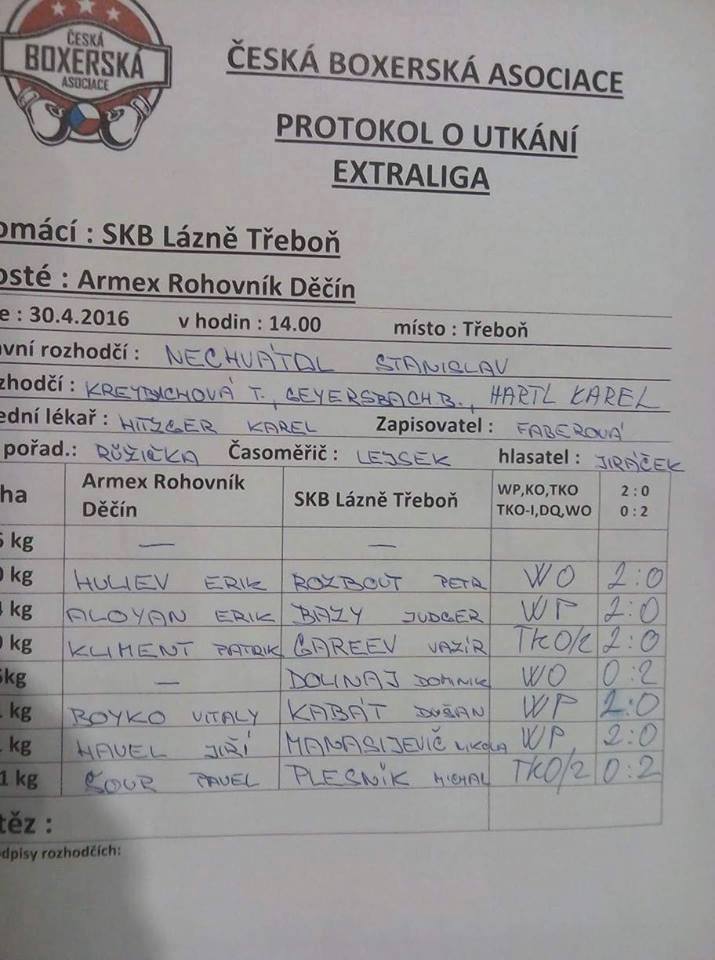 ČESKÁ
BOXERSKÁ
ASOCIACE
ČESKÁ BOXERSKÁ ASOCIACE
PROTOKOL O UTKÁNÍ
EXTRALIGA
omácí : SKB Lázně Třeboň
osté : Armex Rohovník Děčín
e : 30.4.2016 v hodin : 14.00 místo : Třeboň
avní rozhodčí : NECHVÁTAL STANISLAV
zhodčí : KREYBICHOVÁ T., GEYERSBACH B., HARTL KAREL
ední lékař : HITZGER KAREL Zapisovatel : FABEROVÁ
pořad.: RŮŽIČKA Časoměřič : LEJSEK hlasatel : JIRÁČEK
ha Armex Rohovník Děčín SKB Lázně Třeboň WP,KO,TKO TKO-I,DQ,WO 2:0 0:2
kg — —
kg HULIEV ERIK ROZBOUT PETR WO 2:0
kg ALOYAN ERIK BAZY JUDGER WP 2:0
kg KLIMENT PATRIK GAREEV VAZÍR TKO/2 2:0
kg — DOLINAJ DOMINIK WO 0:2
kg BOYKO VITALY KABÁT DUŠAN WP 2:0
kg HAVEL JIŘÍ MANASIJEVIČ NIKOLA WP 2:0
1 kg ŠOUR PAVEL PLESNÍK MICHAL TKO/2 0:2
těz :
dpisy rozhodčích: